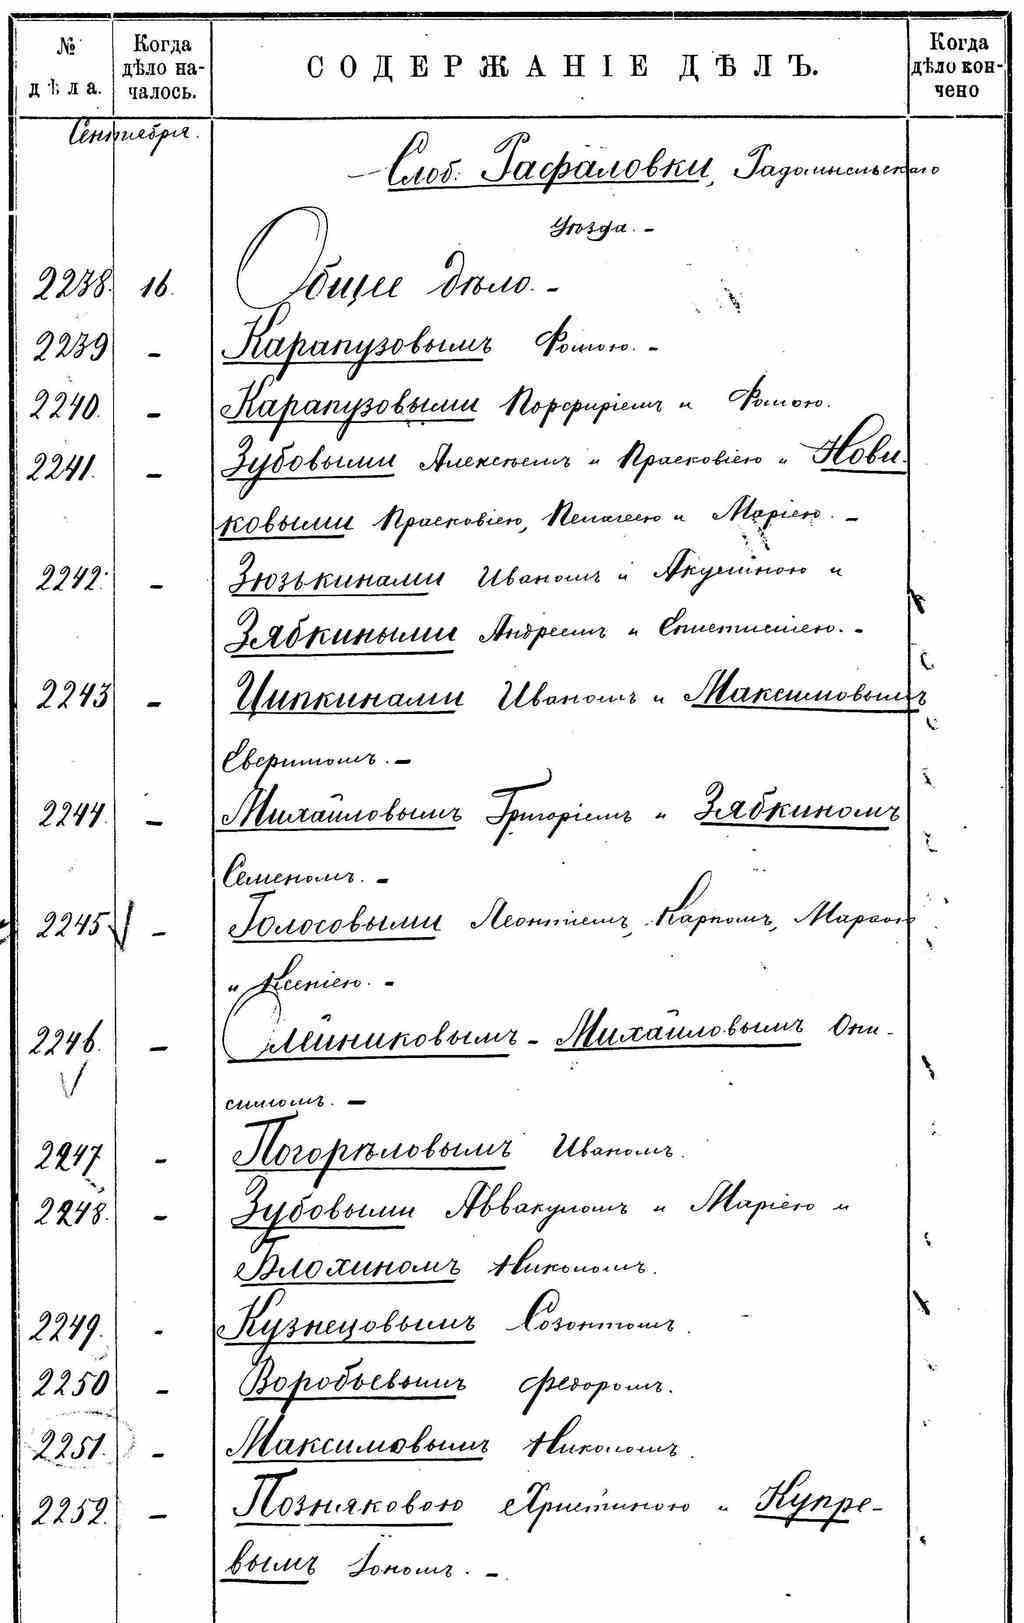 № дѣла.
Когда дѣло на-чалось.
СОДЕРЖАНІЕ ДѢЛЪ.
Когда дѣло кон-чено
Сентября.
Слоб. Рафаловки, Радомысльскаго
уѣзда. -
2238. 16. Общее дѣло. -
2239 - Карапузовымъ Фомою. -
2240. - Карапузовыми Порфиріемъ и Фомою.
2241. - Зубовыми Алексѣемъ и Прасковіею и Нови-
ковыми Прасковіею, Пелагеею и Маріею. -
2242. - Зюзькинами Иваномъ и Акулиною и
Зябкиными Андреемъ и
2243 - Ципкинами Иваномъ и Максимовымъ
-
2244. - Михайловымъ Григоріемъ и Зябкиномъ
Семеномъ. -
2245 - Голосовыми Леонтіемъ, Карпомъ, Марѳою
и Ксеніею. -
2246. - Олейниковымъ - Михайловымъ Они-
симомъ. -
2247 - Погорѣловымъ Иваномъ.
2248. - Зубовыми Аввакумомъ и Маріею и
Блохиномъ Николомъ.
2249. - Кузнецовымъ Созонтомъ.
2250 - Воробьевымъ Федоромъ.
2251. - Максимовымъ Николомъ.
2252. - Позняковою Христиною и Купре-
вымъ Іономъ. -